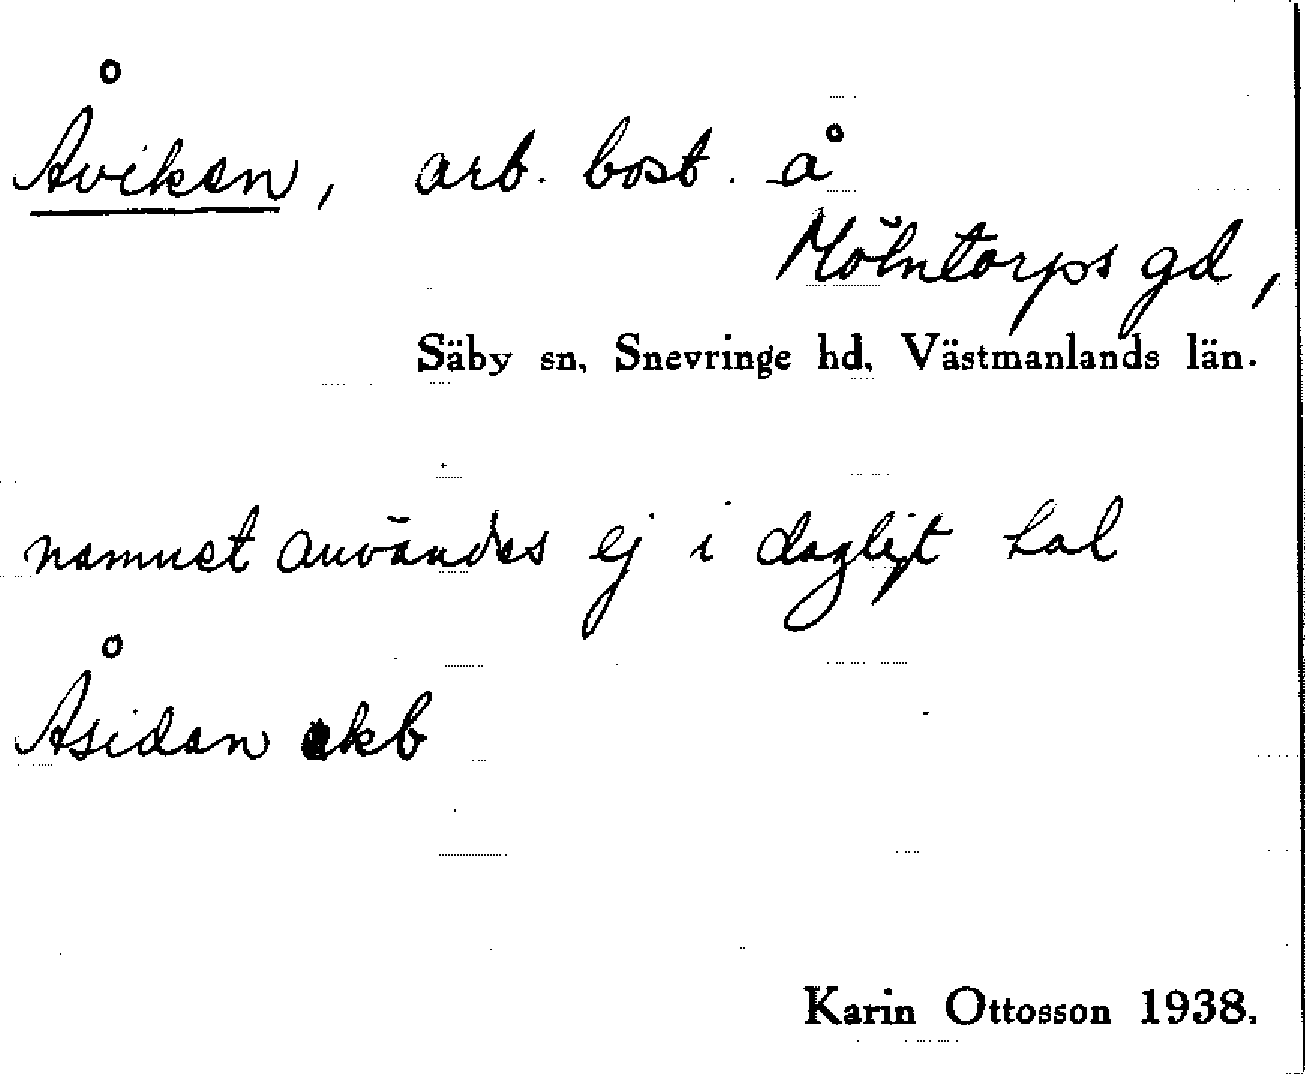 Åviken, arb. bost. å
Mölntorps gd,
Säby sn, Snevringe hd, Västmanlands län.
namnet användes ej i dagligt tal
Åsidan ekb
Karin Ottosson 1938.